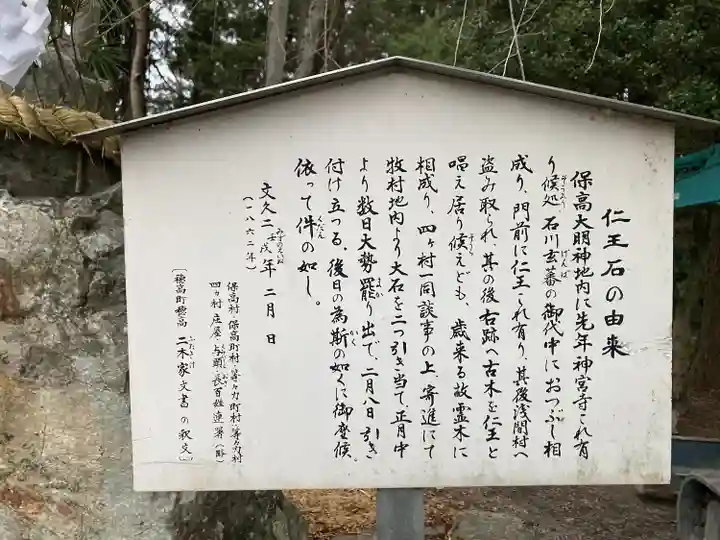 仁王石の由来
保高大明神地内に先年神宮寺これ有
り候処 石川玄蕃の御代中におつぶし相
成り、門前に仁王これ有り、其後浅間村へ
盗み取られ、其の後古跡へ古木を仁王と
唱え居り候えども、歳来る故霊木に
相成り、四ヶ村一同談事の上、寄進にて
牧村地内より大石を二つ引き当て、正月中
より数日大勢罷り出で、二月八日引き
付け立つる、後日の為斯の如くに御座候、
依って件の如し。
文久二壬戌年 二月 日
(一八六二年)
保高村・保高町村・等々力町村・等々力村
四ヵ村 庄屋・与頭・長百姓連署(卧)
〔穂高町穂高 二木家文書の釈文〕